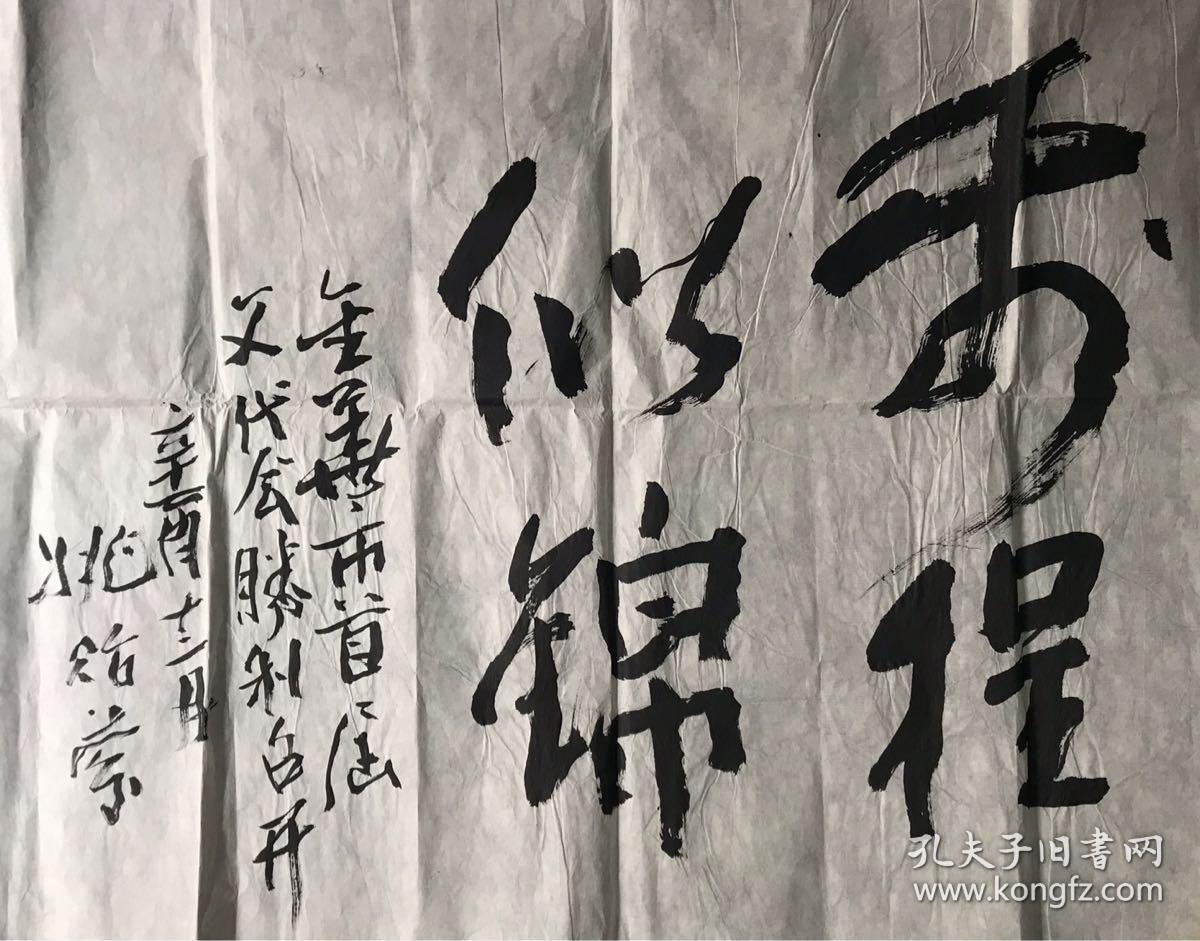 前程
似錦
金華市首屆
文代会勝利召开
辛酉十二月
姚
孔夫子旧書网
www.kongfz.com